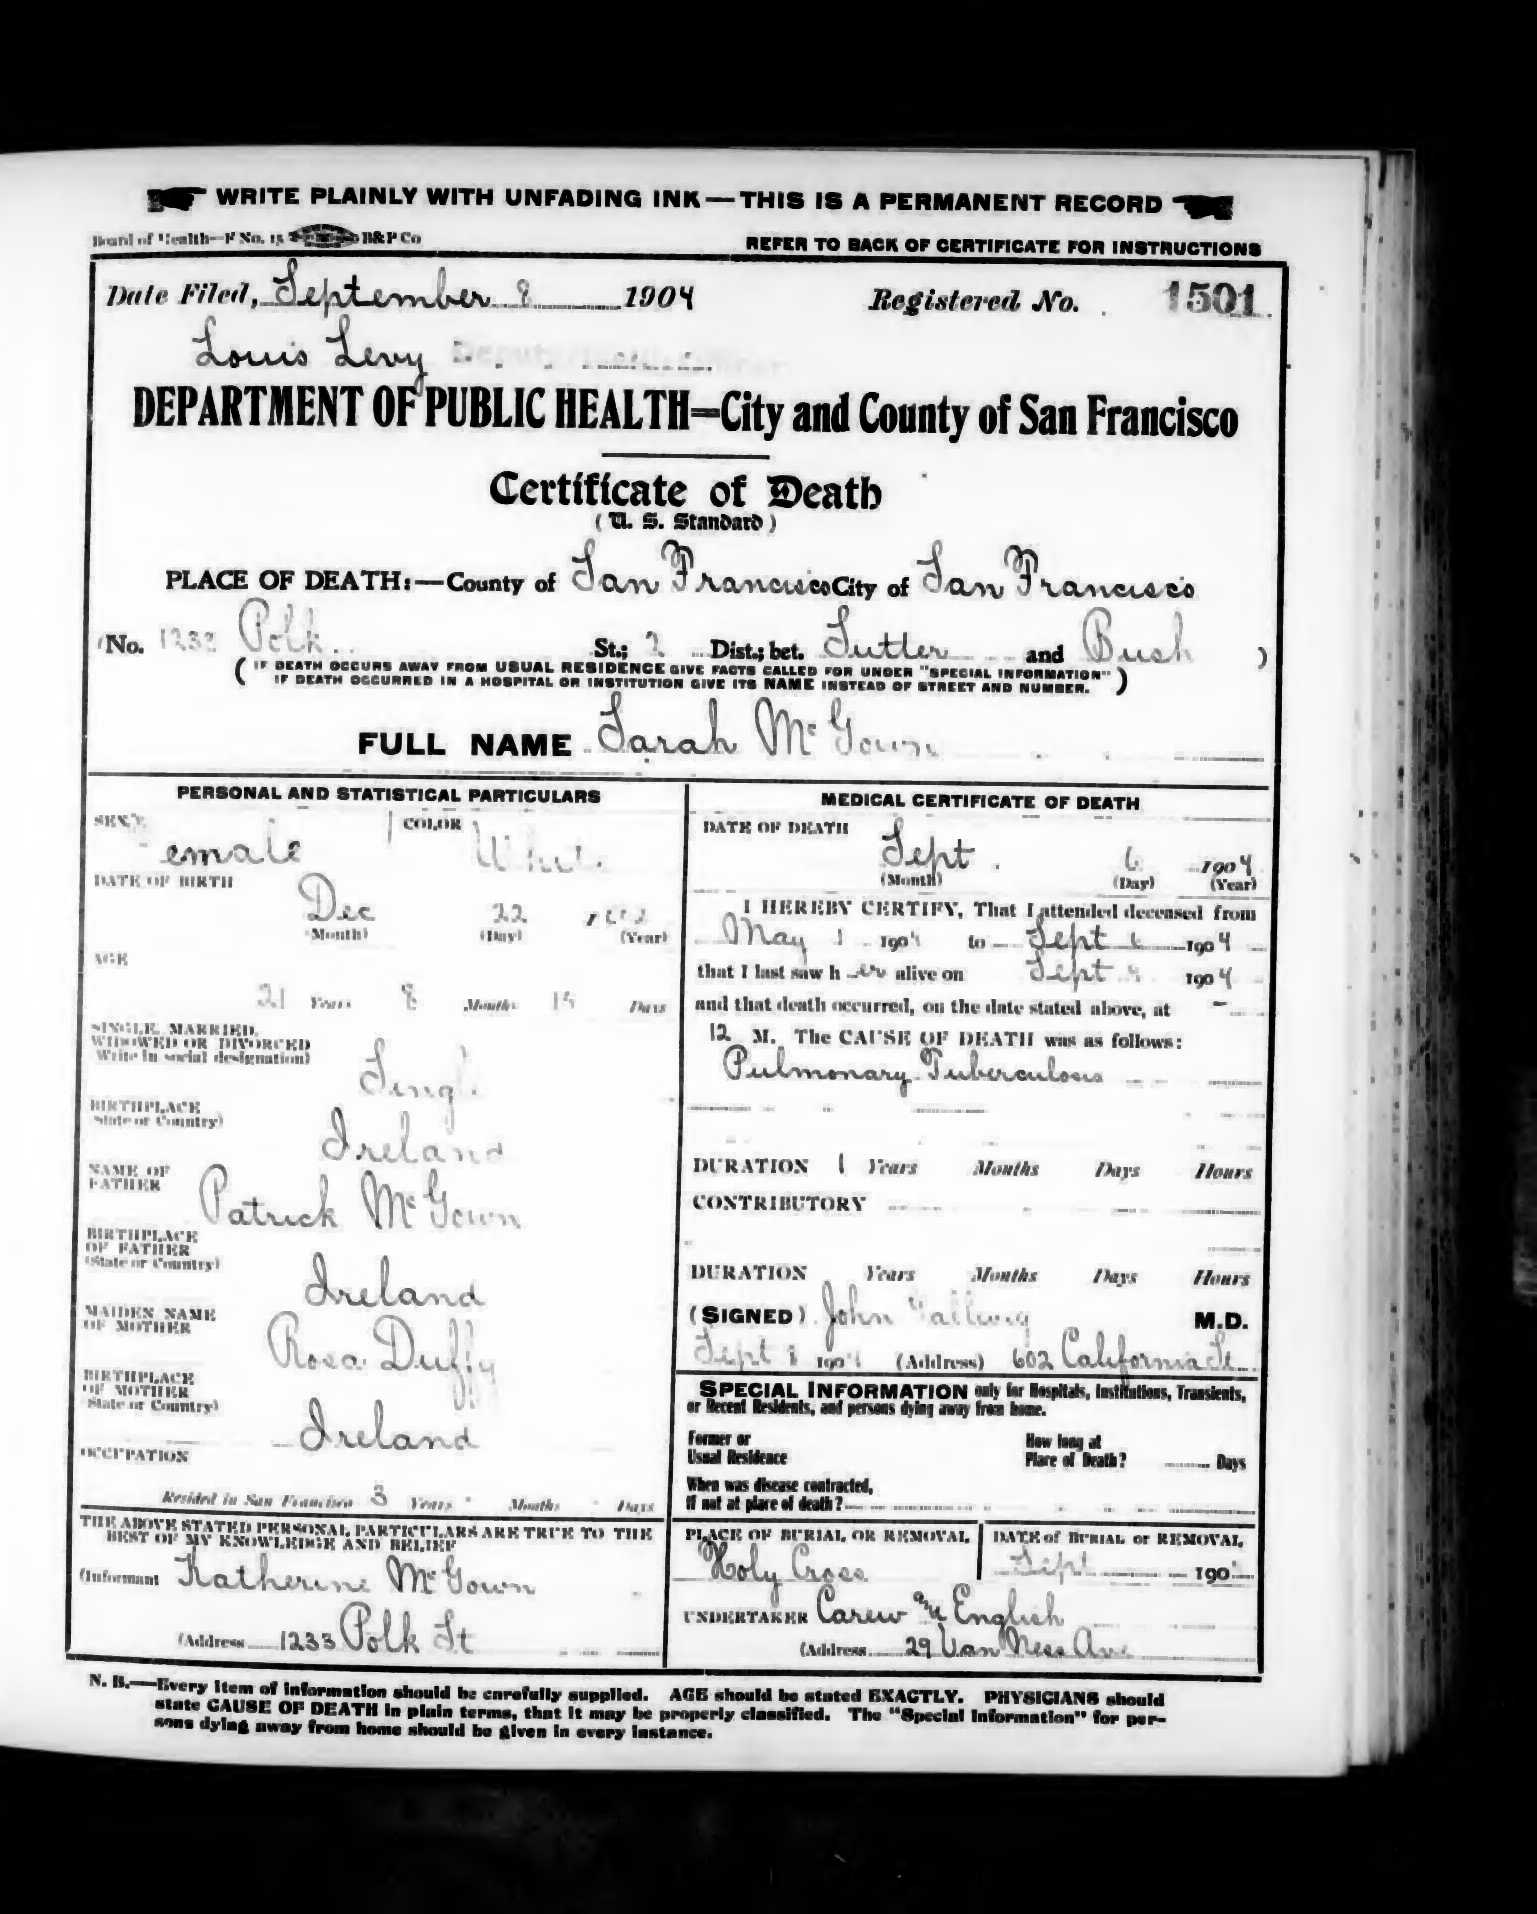 WRITE PLAINLY WITH UNFADING INK—THIS IS A PERMANENT RECORD
Board of Health—F No. 15 B&P Co
REFER TO BACK OF CERTIFICATE FOR INSTRUCTIONS
Date Filed, September 8 1904 Registered No. 1501
Louis Levy Deputy Health Officer
DEPARTMENT OF PUBLIC HEALTH—City and County of San Francisco
Certificate of Death
(U. S. Standard)
PLACE OF DEATH:—County of San Francisco City of San Francisco
(No. 1233 Polk St.; 2 Dist.; bet. Sutter and Bush )
(IF DEATH OCCURS AWAY FROM USUAL RESIDENCE GIVE FACTS CALLED FOR UNDER "SPECIAL INFORMATION"
IF DEATH OCCURRED IN A HOSPITAL OR INSTITUTION GIVE ITS NAME INSTEAD OF STREET AND NUMBER.)
FULL NAME Sarah McGown
PERSONAL AND STATISTICAL PARTICULARS
SEX Female COLOR White
DATE OF BIRTH
Dec 22
(Month) (Day) (Year)
AGE
21 Years 8 Months 15 Days
SINGLE, MARRIED,
WIDOWED OR DIVORCED
Write in social designation)
Single
BIRTHPLACE
State or Country)
Ireland
NAME OF
FATHER
Patrick McGown
BIRTHPLACE
OF FATHER
(State or Country)
Ireland
MAIDEN NAME
OF MOTHER
Rosa Duffy
BIRTHPLACE
OF MOTHER
State or Country)
Ireland
OCCUPATION
Resided in San Francisco 3 Years Months Days
THE ABOVE STATED PERSONAL PARTICULARS ARE TRUE TO THE
BEST OF MY KNOWLEDGE AND BELIEF
(Informant Katherine McGown
(Address 1233 Polk St
MEDICAL CERTIFICATE OF DEATH
DATE OF DEATH
Sept. 6 1904
(Month) (Day) (Year)
I HEREBY CERTIFY, That I attended deceased from
May 1 1904 to Sept 6 1904
that I last saw h er alive on Sept 1904
and that death occurred, on the date stated above, at
12 M. The CAUSE OF DEATH was as follows:
Pulmonary Tuberculosis
DURATION 1 Years Months Days Hours
CONTRIBUTORY
DURATION Years Months Days Hours
(SIGNED) John Gallwey M.D.
Sept 1904 (Address) 602 California St
SPECIAL INFORMATION only for Hospitals, Institutions, Transients,
or Recent Residents, and persons dying away from home.
Former or
Usual Residence
How long at
Place of Death? Days
When was disease contracted,
If not at place of death?
PLACE OF BURIAL OR REMOVAL
Holy Cross
DATE of BURIAL or REMOVAL
Sept 190
UNDERTAKER Carew and English
(Address 29 Van Ness Ave
N. B.—Every item of information should be carefully supplied. AGE should be stated EXACTLY. PHYSICIANS should
state CAUSE OF DEATH in plain terms, that it may be properly classified. The "Special Information" for per-
sons dying away from home should be given in every instance.